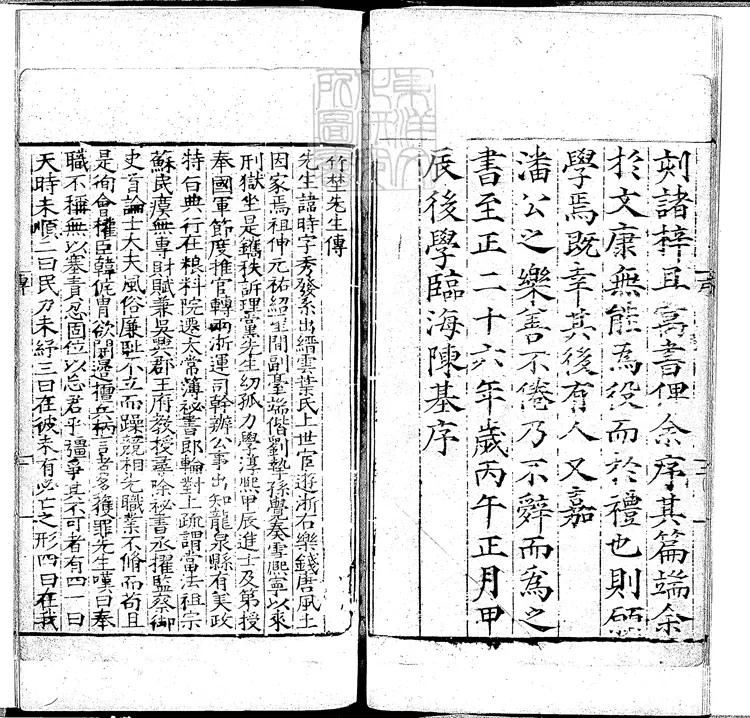 刻諸梓且寓書俾余序其篇端余
於文康無能為役而於禮也則願
學焉既幸其後有人又嘉
潘公之樂善不倦乃不辭而為之
書至正二十六年歲丙午正月甲
辰後學臨海陳基序
竹埜先生傳
先生諱時字秀發系出縉雲葉氏上世宦遊浙右樂錢唐風土
因家焉祖仲元祐紹聖間副臺端偕劉摯孫覺奏雪熙寧以來
刑獄坐是鐫秩訴理當先生幼孤力學淳熙甲辰進士及第授
奉國軍節度推官轉兩浙運司幹辦公事出知龍泉縣有美政
特白典行在粮料院遷太常簿秘書郎輪對上疏謂當法祖宗
蘇民瘼無專財賦兼吳興郡王府教授尋除秘書丞擢監察御
史首論士大夫風俗廉恥不立而躁競相先職業不脩而苟且
是徇會權臣韓侂胄欲開邊擅兵柄言者多獲罪先生嘆曰奉
職不稱無以塞責忍固位以忘君乎彊爭其不可者有四一曰
天時未順二曰民力未紓三曰在彼未有必亡之形四曰在我